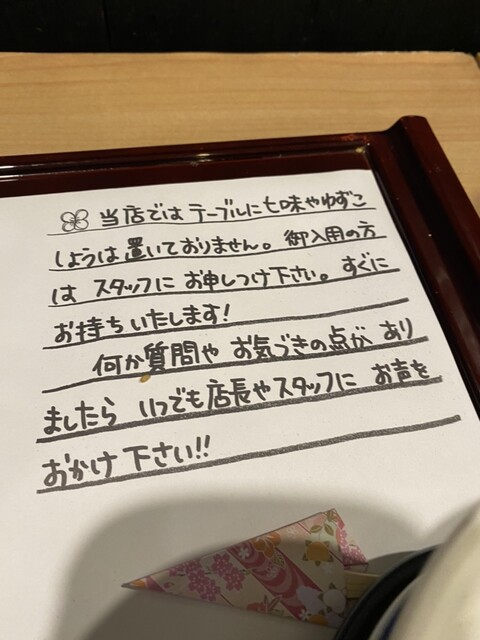 当店ではテーブルに七味やゆずこ
しょうは置いておりません。御入用の方
は スタッフにお申しつけ下さい。すぐに
お持ちいたします!
何か質問や お気づきの点が あり
ましたら いつでも店長やスタッフに お声を
おかけ下さい!!